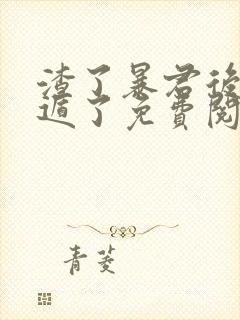 渣了暴君後
遁了免費閱
青菱